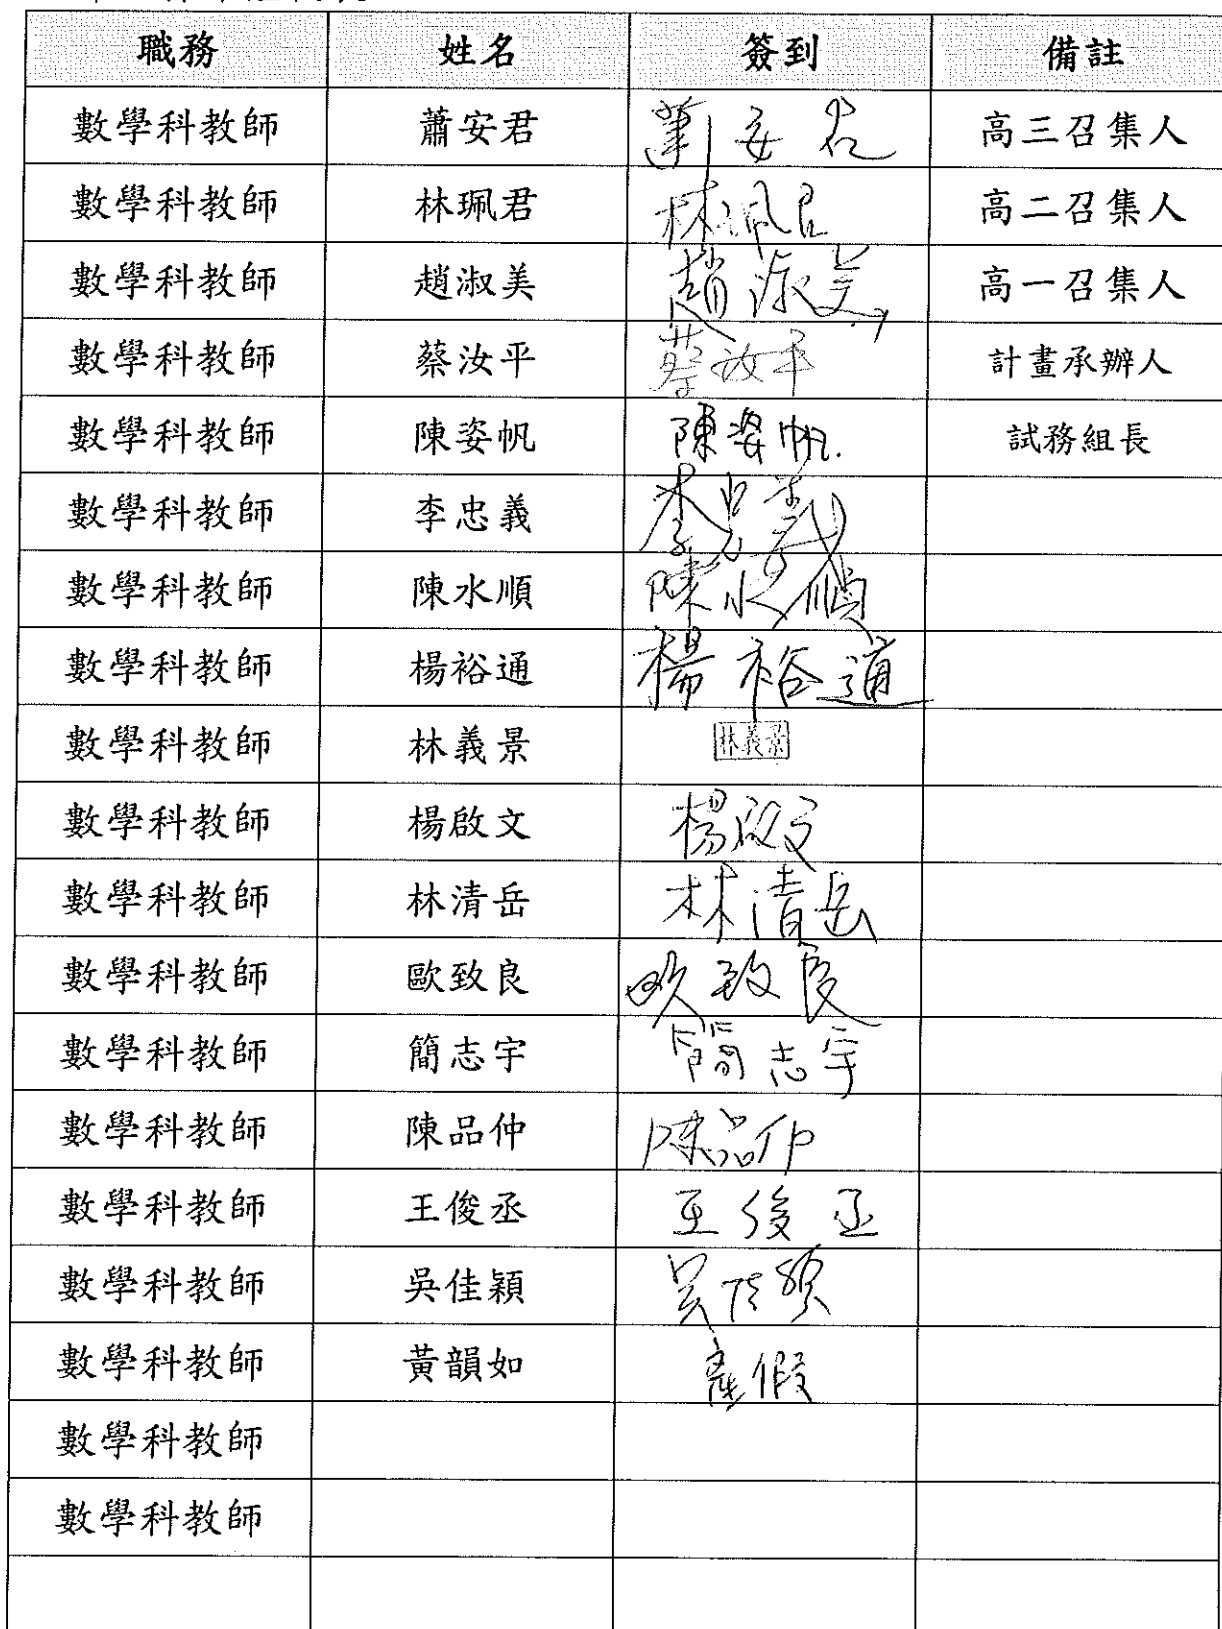 職務 姓名 簽到 備註
數學科教師 蕭安君 蕭安君 高三召集人
數學科教師 林珮君 林珮君 高二召集人
數學科教師 趙淑美 趙淑美 高一召集人
數學科教師 蔡汝平 蔡汝平 計畫承辦人
數學科教師 陳姿帆 陳姿帆. 試務組長
數學科教師 李忠義 李忠義
數學科教師 陳水順 陳水順
數學科教師 楊裕通 楊裕通
數學科教師 林義景 林義景
數學科教師 楊啟文 楊啟文
數學科教師 林清岳 林清岳
數學科教師 歐致良 欧致良
數學科教師 簡志宇 簡志宇
數學科教師 陳品仲 陳品仲
數學科教師 王俊丞 王俊丞
數學科教師 吳佳穎 吳佳穎
數學科教師 黃韻如 產假
數學科教師
數學科教師